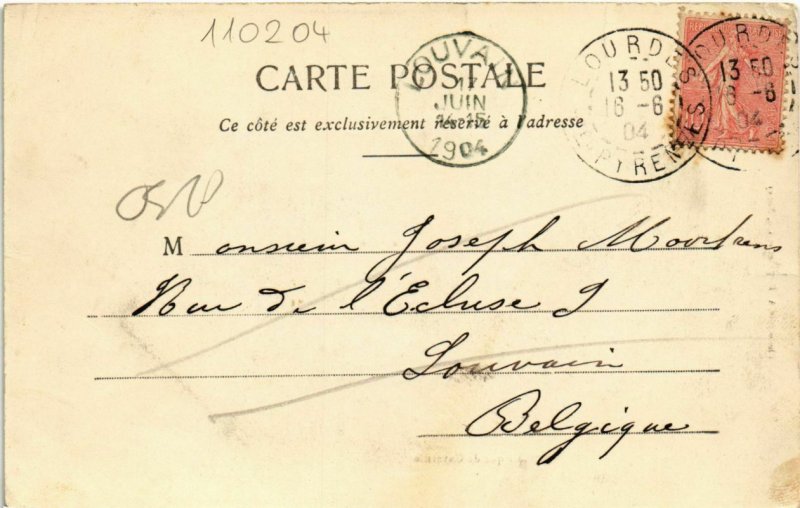 110204
CARTE POSTALE
Ce côté est exclusivement réservé à l'adresse
LOUVAIN
17
JUIN
1904
LOURDES
13 50
16-6
04
PYRENEES
LOURDES
13 50
6-6
04
Monsieur Joseph Moortrens
Rue de l'Ecluse 9
Louvain
Belgique